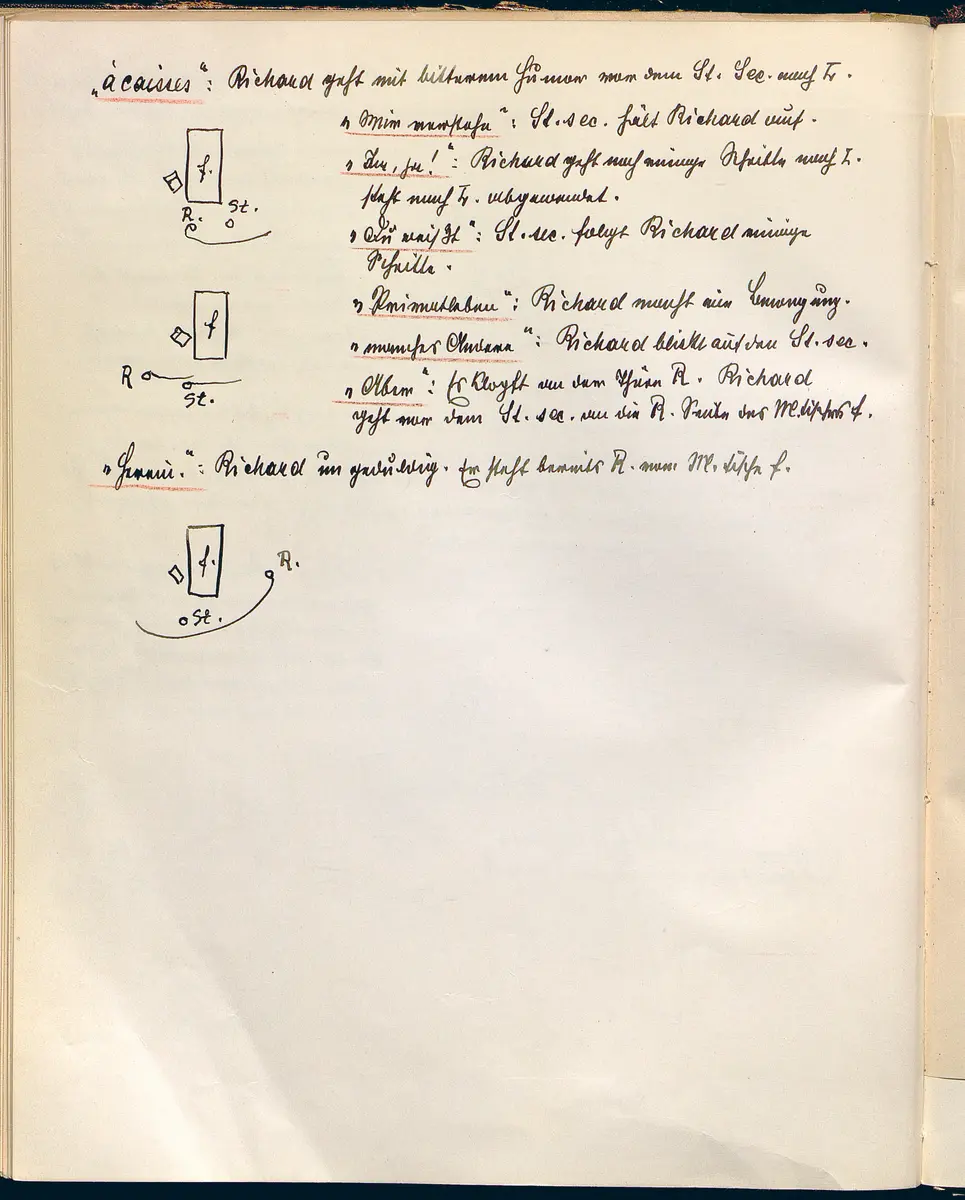 „à caisses“: Richard geht mit bitterem Humor vor dem St. Sec. nach L.
„Wir verstehe“: St. sec. hält Richard auf.
„Ja, ja!“: Richard geht noch einige Schritte nach L.
steht nach L. abgewendet.
„Du weißt“: St. sec. folgt Richard einige
Schritte.
„Privatleben“: Richard macht eine Bewegung.
„manches Andere“: Richard blickt auf den St. sec.
„Aber“: Es klopft an der Thüre R. Richard
geht vor dem St. sec. an die R. Seite des M. tisches f.
„Herein.“: Richard ungeduldig. Er steht bereits R. vom M. tische f.
f.
R.
St.
f
R
St.
f.
R.
St.